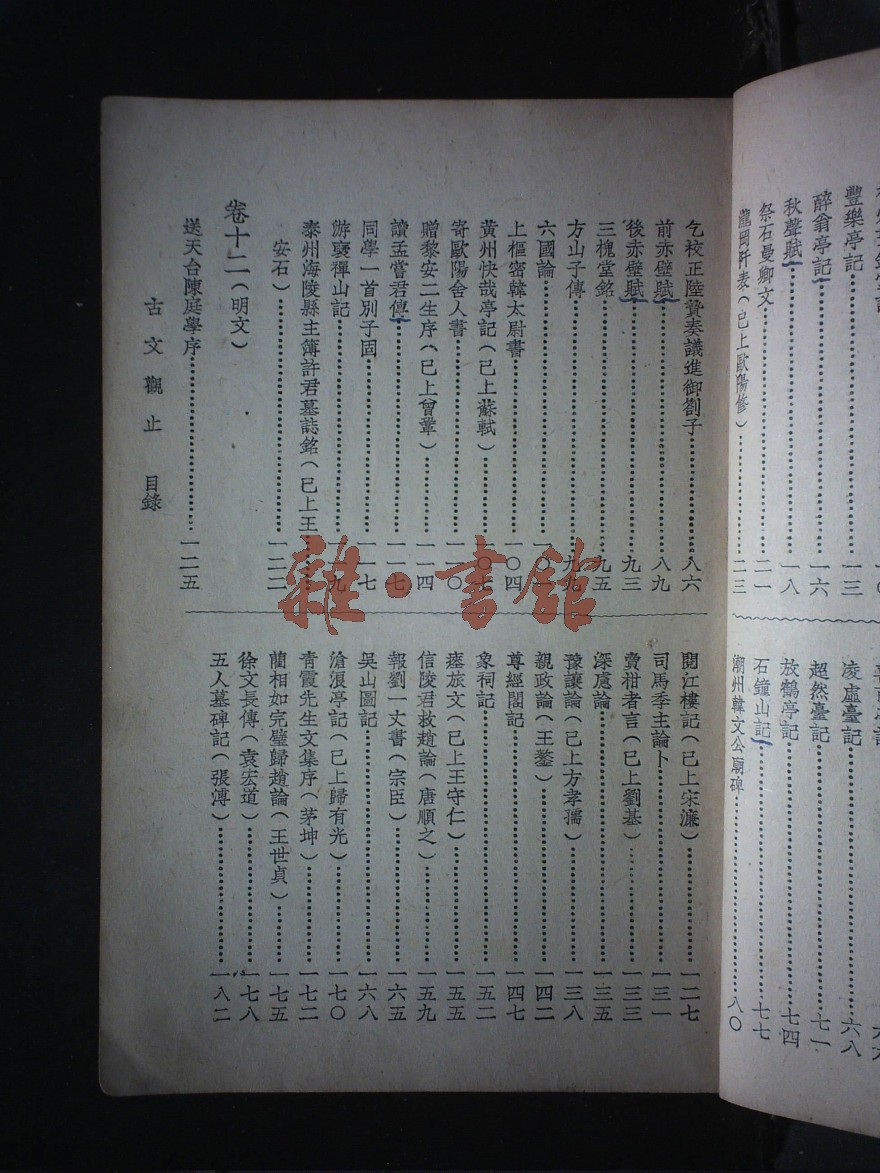 豐樂亭記……一三
醉翁亭記……一六
秋聲賦……一八
祭石曼卿文……二一
瀧岡阡表（已上歐陽修）……二三
凌虛臺記……六八
超然臺記……七一
放鶴亭記……七四
石鐘山記……七七
潮州韓文公廟碑……八〇
乞校正陸贄奏議進御劄子……八六
前赤壁賦……八九
後赤壁賦……九三
三槐堂銘……九五
方山子傳……九九
六國論……一〇一
上樞密韓太尉書……一〇四
黃州快哉亭記（已上蘇軾）……一〇七
寄歐陽舍人書……一一〇
贈黎安二生序（已上曾鞏）……一一四
讀孟嘗君傳……一一七
同學一首別子固……一一七
游褒禪山記……九
泰州海陵縣主簿許君墓誌銘（已上王
安石）……一二二
卷十二（明文）
送天台陳庭學序……一二五
閱江樓記（已上宋濂）……一二七
司馬季主論卜……一三一
賣柑者言（已上劉基）……一三三
深慮論……一三五
豫讓論（已上方孝孺）……一三八
親政論（王鏊）……一四二
尊經閣記……一四七
象祠記……一五二
瘞旅文（已上王守仁）……一五五
信陵君救趙論（唐順之）……一五九
報劉一丈書（宗臣）……一六五
吳山圖記……一六八
滄浪亭記（已上歸有光）……一七〇
青霞先生文集序（茅坤）……一七二
藺相如完璧歸趙論（王世貞）……一七五
徐文長傳（袁宏道）……一七八
五人墓碑記（張溥）……一八二
古文觀止 目錄
雜·書館